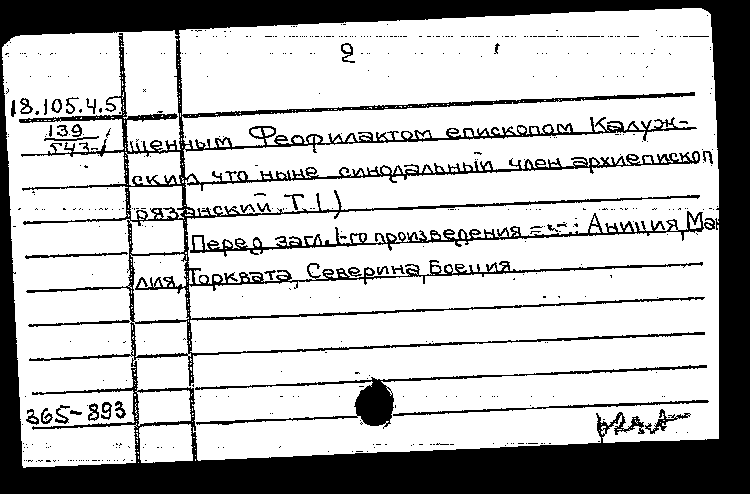 2
18.105.4.5
139
543-1
щенным Феофилактом епископом Калуж-
ским, что ныне синодальный член архиепископ
рязанский. Т. 1.)
Перед загл. 1-го произведения : Аниция, Ман
лия, Торквата, Северина, Боеция.
365-893